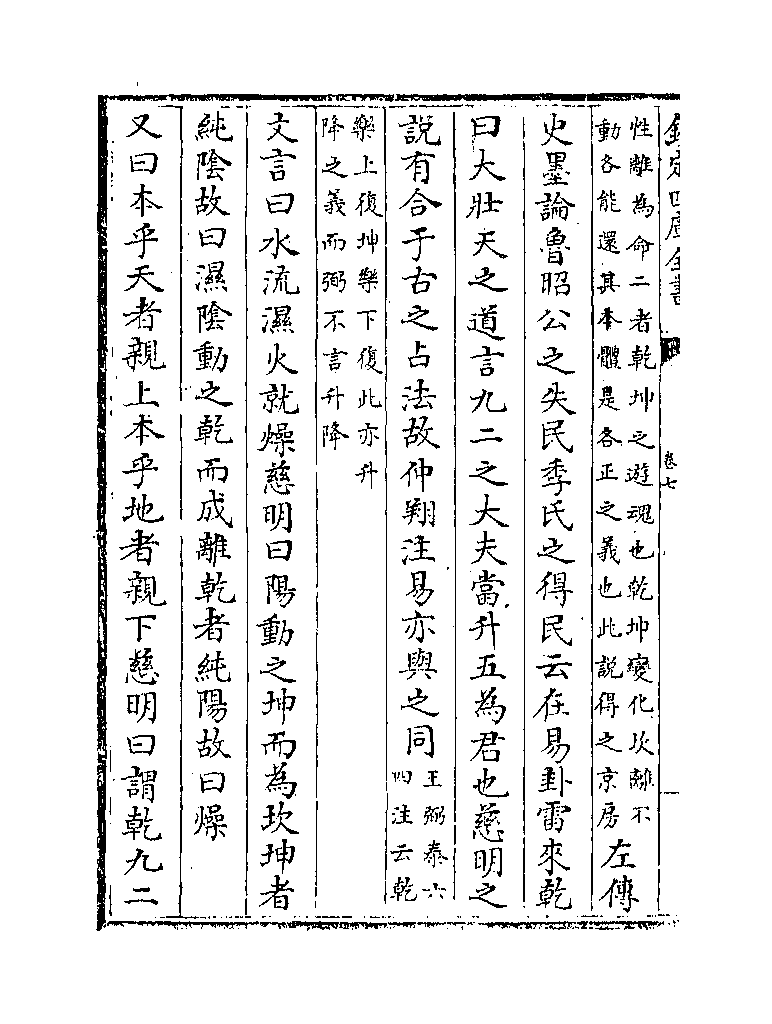 欽定四庫全書
卷七
性離為命二者乾坤之遊魂也乾坤變化坎離不
動各能還其本體是各正之義也此說得之京房
左傳
史墨論魯昭公之失民季氏之得民云在易卦雷來乾
曰大壯天之道言九二之大夫當升五為君也慈明之
說有合于古之占法故仲翔注易亦與之同
王弼泰六
四注云乾
樂上復坤樂下復此亦升
降之義而弼不言升降
文言曰水流濕火就燥慈明曰陽動之坤而為坎坤者
純陰故曰濕陰動之乾而成離乾者純陽故曰燥
又曰本乎天者親上本乎地者親下慈明曰謂乾九二